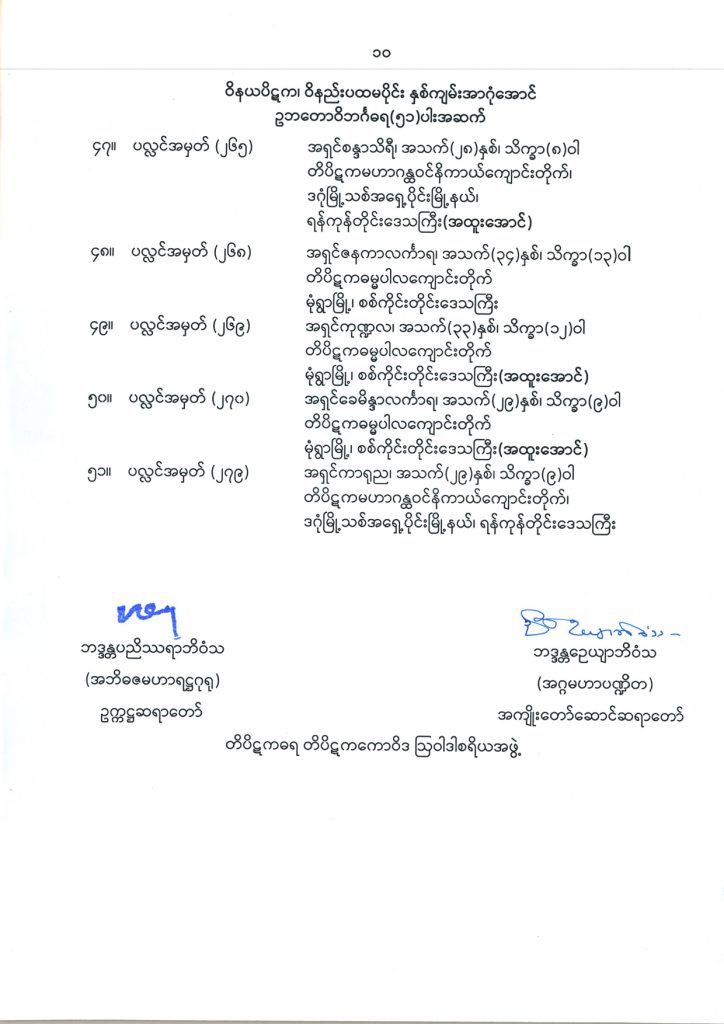 ၁၀
ဝိနယပိဋက၊ ဝိနည်းပထမပိုင်း နှစ်ကျမ်းအာဂုံအောင်
ဥဘတောဝိဘင်္ဂဓရ(၅၁)ပါးအဆက်
၄၇။ ပလ္လင်အမှတ် (၂၆၅) အရှင်စန္ဒာသိရီ၊ အသက်(၂၈)နှစ်၊ သိက္ခာ(၈)ဝါ
တိပိဋကမဟာဂန္ထဝင်နိကာယ်ကျောင်းတိုက်၊
ဒဂုံမြို့သစ်အရှေ့ပိုင်းမြို့နယ်၊
ရန်ကုန်တိုင်းဒေသကြီး(အထူးအောင်)
၄၈။ ပလ္လင်အမှတ် (၂၆၈) အရှင်ဇနကာလင်္ကာရ၊ အသက်(၃၄)နှစ်၊ သိက္ခာ(၁၃)ဝါ
တိပိဋကဓမ္မပါလကျောင်းတိုက်
မုံရွာမြို့၊ စစ်ကိုင်းတိုင်းဒေသကြီး
၄၉။ ပလ္လင်အမှတ် (၂၆၉) အရှင်ကုဏ္ဍလ၊ အသက်(၃၃)နှစ်၊ သိက္ခာ(၁၂)ဝါ
တိပိဋကဓမ္မပါလကျောင်းတိုက်
မုံရွာမြို့၊ စစ်ကိုင်းတိုင်းဒေသကြီး(အထူးအောင်)
၅၀။ ပလ္လင်အမှတ် (၂၇၀) အရှင်ခေမိန္ဒာလင်္ကာရ၊ အသက်(၂၉)နှစ်၊ သိက္ခာ(၉)ဝါ
တိပိဋကဓမ္မပါလကျောင်းတိုက်
မုံရွာမြို့၊ စစ်ကိုင်းတိုင်းဒေသကြီး(အထူးအောင်)
၅၁။ ပလ္လင်အမှတ် (၂၇၉) အရှင်ကာရုည၊ အသက်(၂၉)နှစ်၊ သိက္ခာ(၉)ဝါ
တိပိဋကမဟာဂန္ထဝင်နိကာယ်ကျောင်းတိုက်၊
ဒဂုံမြို့သစ်အရှေ့ပိုင်းမြို့နယ်၊ ရန်ကုန်တိုင်းဒေသကြီး
ဘဒ္ဒန္တပညိဿရာဘိဝံသ
(အဘိဓဇမဟာရဋ္ဌဂုရု)
ဥက္ကဋ္ဌဆရာတော်
ဘဒ္ဒန္တဉေယျာဘိဝံသ
(အဂ္ဂမဟာပဏ္ဍိတ)
အကျိုးတော်ဆောင်ဆရာတော်
တိပိဋကဓရ တိပိဋကကောဝိဒ ဩဝါဒါစရိယအဖွဲ့